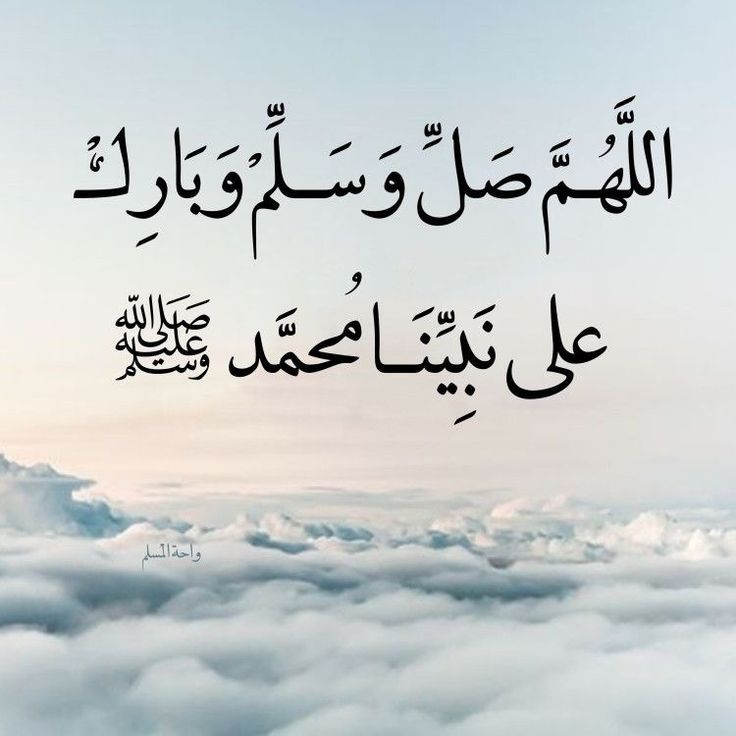 اللَّهُمَّ صَلِّ وَسَلِّمْ وَبَارِكْ
على نَبِيِّنَا مُحمَّد ﷺ
واحة المسلم